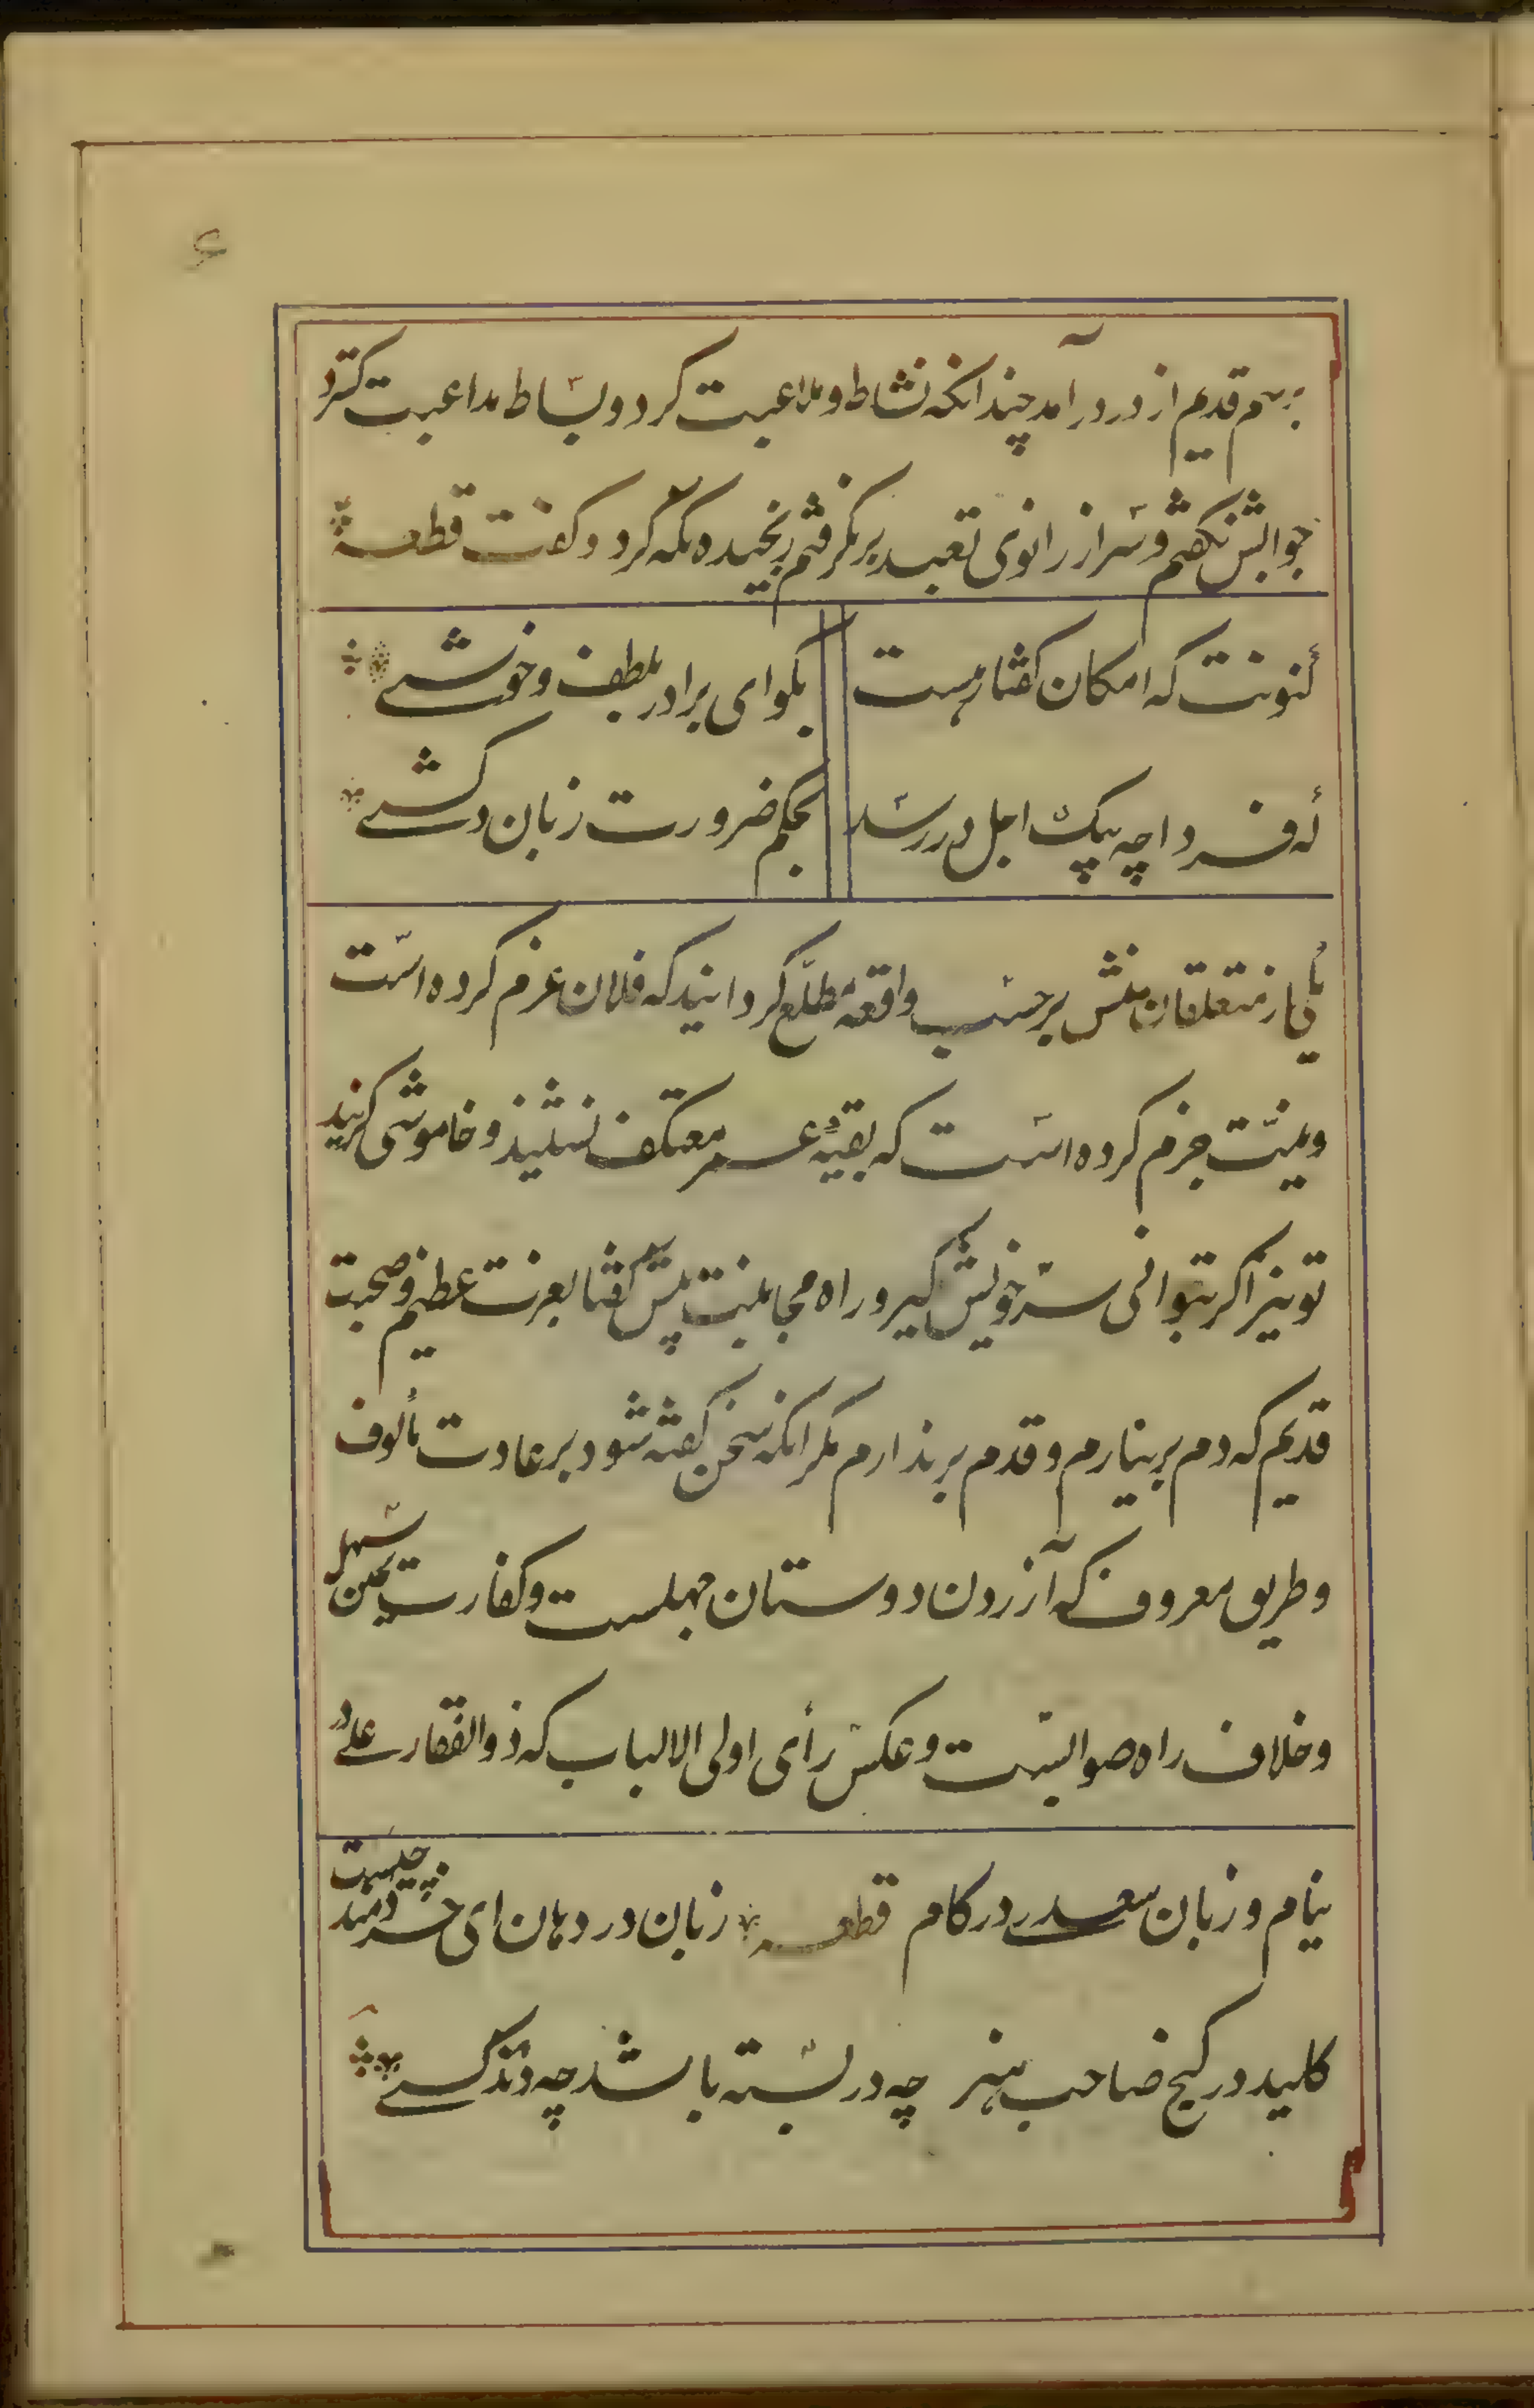 ۶
برسم قدیم از در درآمد چندانکه نشاط و ملاعبت کرد و بساط مداعبت گسترد
جوابش نگفتم و سر از زانوی تعبد برنگرفتم رنجیده نگه کرد و گفت قطعه
کنونت که امکان گفتار هست بگو ای برادر بلطف و خوشی
که فردا چه پیک اجل در رسد بحکم ضرورت زبان درکشی
یکی از متعلقان منش بر حسب واقعه مطلع گردانید که فلان عزم کرده است
و نیت جزم کرده است که بقیه عمر معتکف نشیند و خاموشی گزیند
تو نیز اگر بتوانی سر خویش گیر و راه مجانبت پیش گفتا بعزت عظیم و صحبت
قدیم که دم بر نیارم و قدم بر ندارم مگر آنکه سخن گفته شود بر عادت مألوف
و طریق معروف که آزردن دوستان جهلست و کفارت یمین سهل
و خلاف راه صوابست و عکس رأی اولی الالباب که ذوالفقار علی در
نیام و زبان سعدی در کام قطعه زبان در دهان ای خردمند چیست
کلید در گنج صاحب هنر چه در بسته باشد چه داند کسی